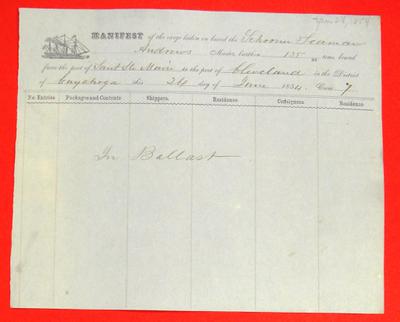 June 24, 1854
MANIFEST of the cargo laden on board the Schooner Seaman
Andrews Master, burthen 135 tons bound
from the port of Saut Ste Marie to the port of Cleveland in the District
of Cuyahoga this 24 day of June 1854. Crew 7
No. Entries Packages and Contents Shippers. Residence Consignees. Residence
In Ballast